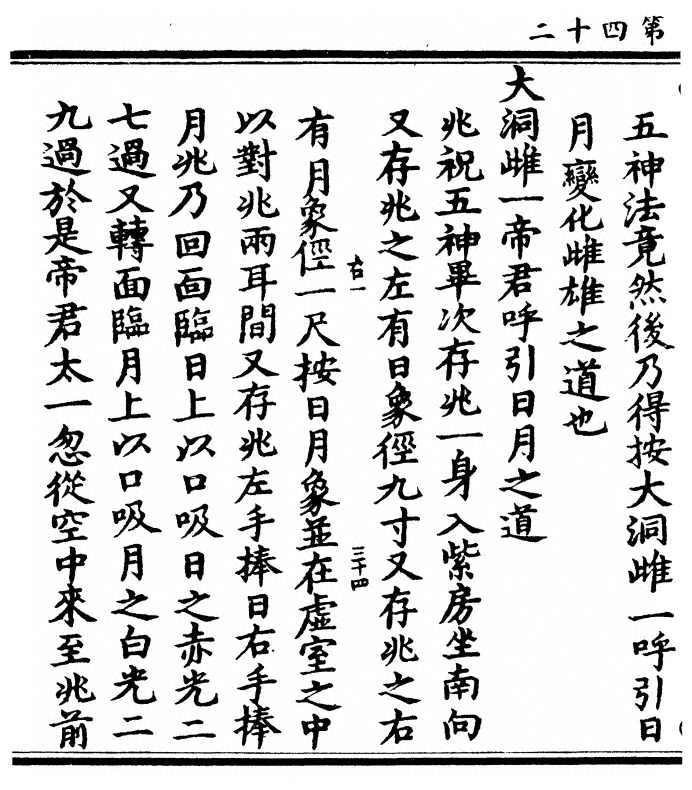 第四十二
五神法竟然後乃得按大洞雌一呼引日
月變化雌雄之道也
大洞雌一帝君呼引日月之道
兆祝五神畢次存兆一身入紫房坐南向
又存兆之左有日象徑九寸又存兆之右
有月象徑一尺按日月象並在虛室之中
以對兆兩耳間又存兆左手捧日右手捧
月兆乃回面臨日上以口吸日之赤光二
七過又轉面臨月上以口吸月之白光二
九過於是帝君太一忽從空中來至兆前
大百一
三十四